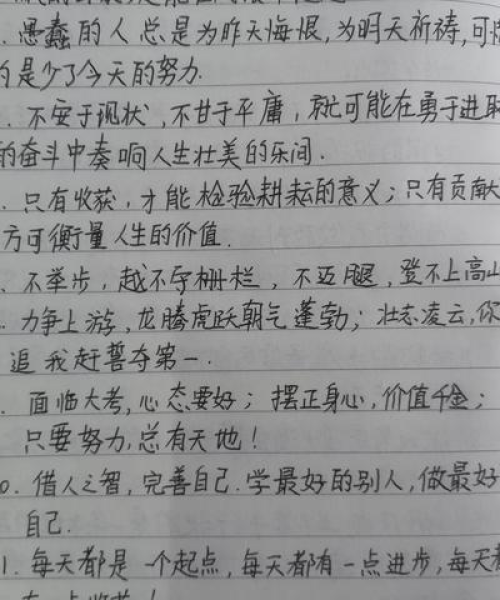 . 愚蠢的人总是为昨天悔恨,为明天祈祷,可
的是少了今天的努力.
. 不安于现状,不甘于平庸,就可能在勇于进取
的奋斗中奏响人生壮美的乐间.
. 只有收获,才能检验耕耘的意义;只有贡献
方可衡量人生的价值.
、不举步,越不守栅栏,不迈腿,登不上高山
. 力争上游,龙腾虎跃朝气蓬勃;壮志凌云,你
追我赶誓夺第一.
. 面临大考,心态要好;摆正身心,价值千金;
只要努力,总有天地!
0. 借人之智,完善自己.学最好的别人,做最好
自己.
1. 每天都是一个起点,每天都有一点进步,每天
有一点收获!